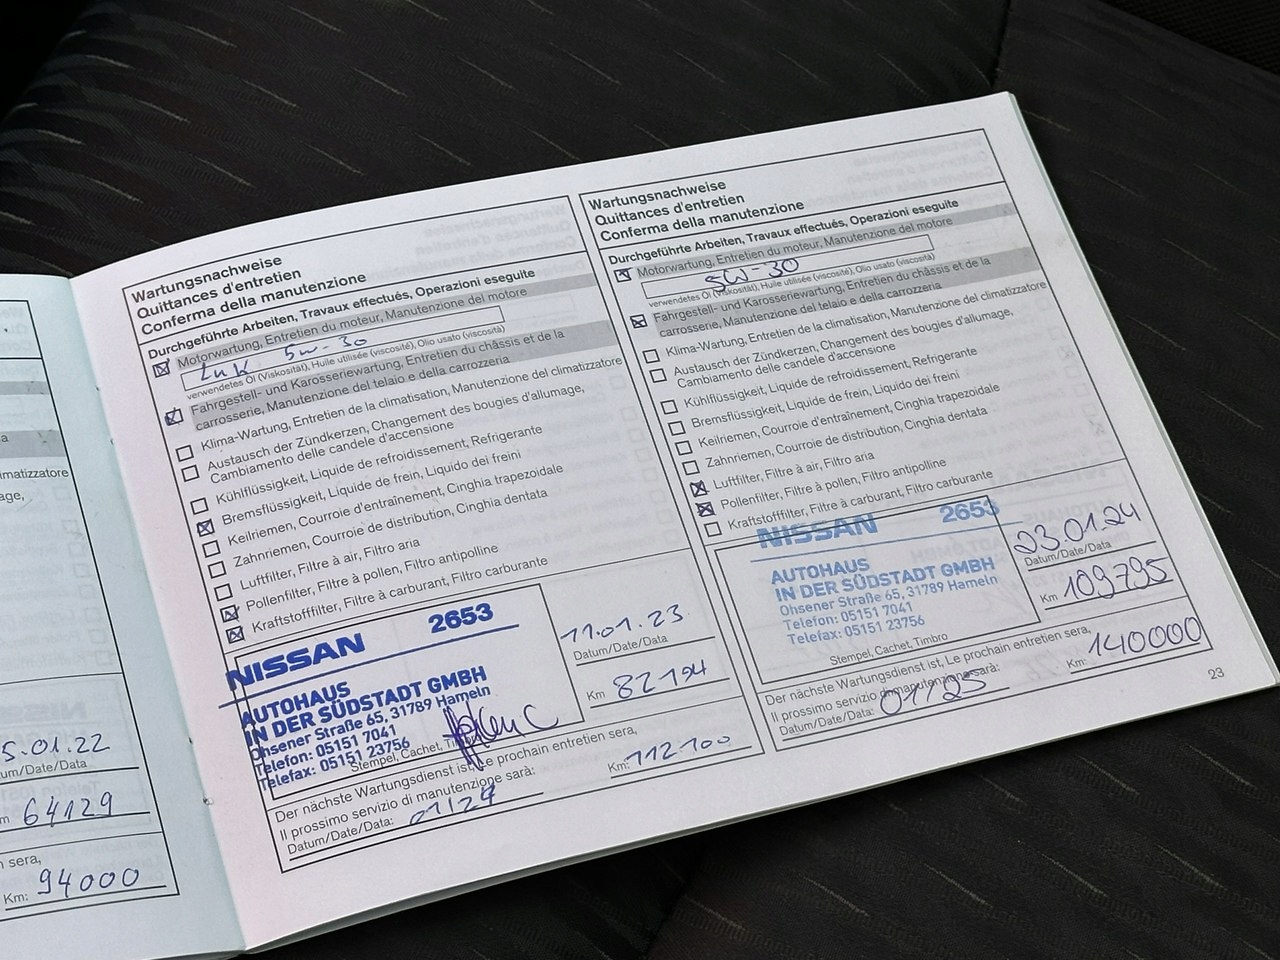 limatizzatore
age,
5.01.22
um/Date/Data
m 64129
n sera,
Km: 94000
Wartungsnachweise
Quittances d'entretien
Conferma della manutenzione
Durchgeführte Arbeiten, Travaux effectués, Operazioni eseguite
Motorwartung, Entretien du moteur, Manutenzione del motore
5W-30
verwendetes Öl (Viskosität), Huile utilisée (viscosité), Olio usato (viscosità)
Fahrgestell- und Karosseriewartung, Entretien du châssis et de la
carrosserie, Manutenzione del telaio e della carrozzeria
Klima-Wartung, Entretien de la climatisation, Manutenzione del climatizzatore
Austausch der Zündkerzen, Changement des bougies d'allumage,
Cambiamento delle candele d'accensione
Kühlflüssigkeit, Liquide de refroidissement, Refrigerante
Bremsflüssigkeit, Liquide de frein, Liquido dei freini
Keilriemen, Courroie d'entraînement, Cinghia trapezoidale
Zahnriemen, Courroie de distribution, Cinghia dentata
Luftfilter, Filtre à air, Filtro aria
Pollenfilter, Filtre à pollen, Filtro antipolline
Kraftstofffilter, Filtre à carburant, Filtro carburante
NISSAN 2653
AUTOHAUS
IN DER SÜDSTADT GMBH
Ohsener Straße 65, 31789 Hameln
Telefon: 05151 7041
Telefax: 05151 23756
Stempel, Cachet, Timbro
11.01.23
Datum/Date/Data
Km 82194
Der nächste Wartungsdienst ist, Le prochain entretien sera,
Il prossimo servizio di manutenzione sarà:
Datum/Date/Data: 01/24
Km: 112100
Wartungsnachweise
Quittances d'entretien
Conferma della manutenzione
Durchgeführte Arbeiten, Travaux effectués, Operazioni eseguite
Motorwartung, Entretien du moteur, Manutenzione del motore
5W-30
verwendetes Öl (Viskosität), Huile utilisée (viscosité), Olio usato (viscosità)
Fahrgestell- und Karosseriewartung, Entretien du châssis et de la
carrosserie, Manutenzione del telaio e della carrozzeria
Klima-Wartung, Entretien de la climatisation, Manutenzione del climatizzatore
Austausch der Zündkerzen, Changement des bougies d'allumage,
Cambiamento delle candele d'accensione
Kühlflüssigkeit, Liquide de refroidissement, Refrigerante
Bremsflüssigkeit, Liquide de frein, Liquido dei freini
Keilriemen, Courroie d'entraînement, Cinghia trapezoidale
Zahnriemen, Courroie de distribution, Cinghia dentata
Luftfilter, Filtre à air, Filtro aria
Pollenfilter, Filtre à pollen, Filtro antipolline
Kraftstofffilter, Filtre à carburant, Filtro carburante
NISSAN 2653
AUTOHAUS
IN DER SÜDSTADT GMBH
Ohsener Straße 65, 31789 Hameln
Telefon: 05151 7041
Telefax: 05151 23756
Stempel, Cachet, Timbro
23.01.24
Datum/Date/Data
Km 109795
Der nächste Wartungsdienst ist, Le prochain entretien sera,
Il prossimo servizio di manutenzione sarà:
Datum/Date/Data: 01/25
Km: 140000
23